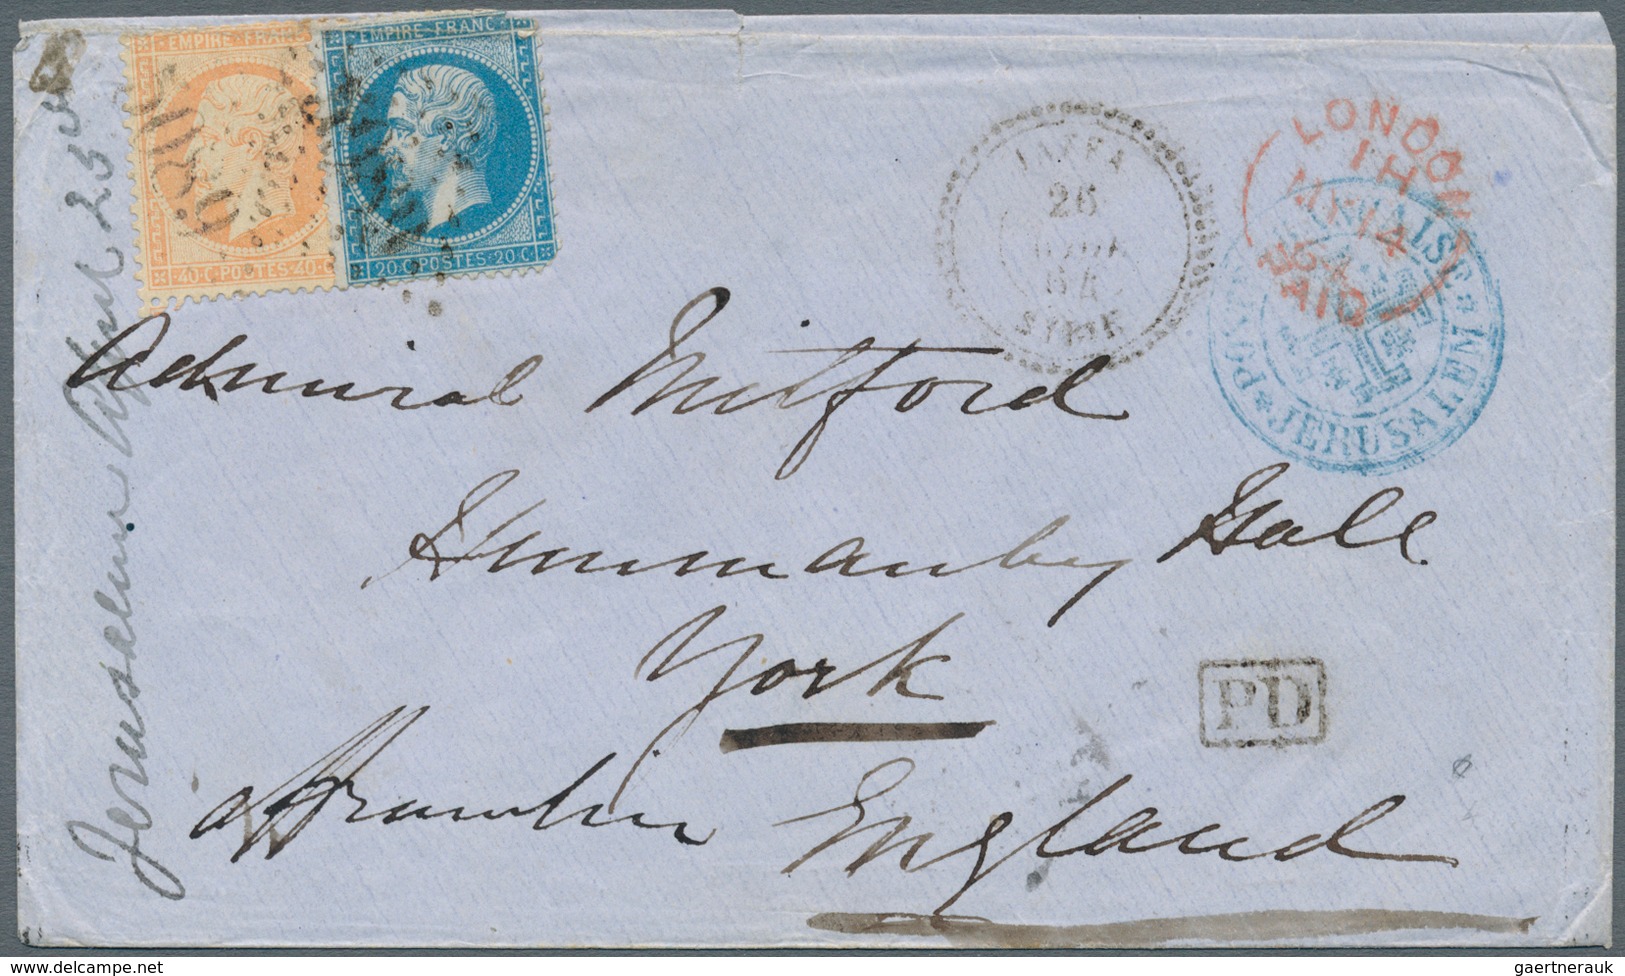 EMPIRE FRANC
40·C·POSTES·40·C
EMPIRE·FRANC
20·C·POSTES·20·C
5089
JAFFA
26
84
SYRIE
LONDON
1H
MY 14
64
PAID
POSTE FRANÇAISE
JERUSALEM
Jerusalem April 25
Admiral Mitford
Hunmanby Hall
York
PD
affranchie England
delcampe.net
gaertnerauk